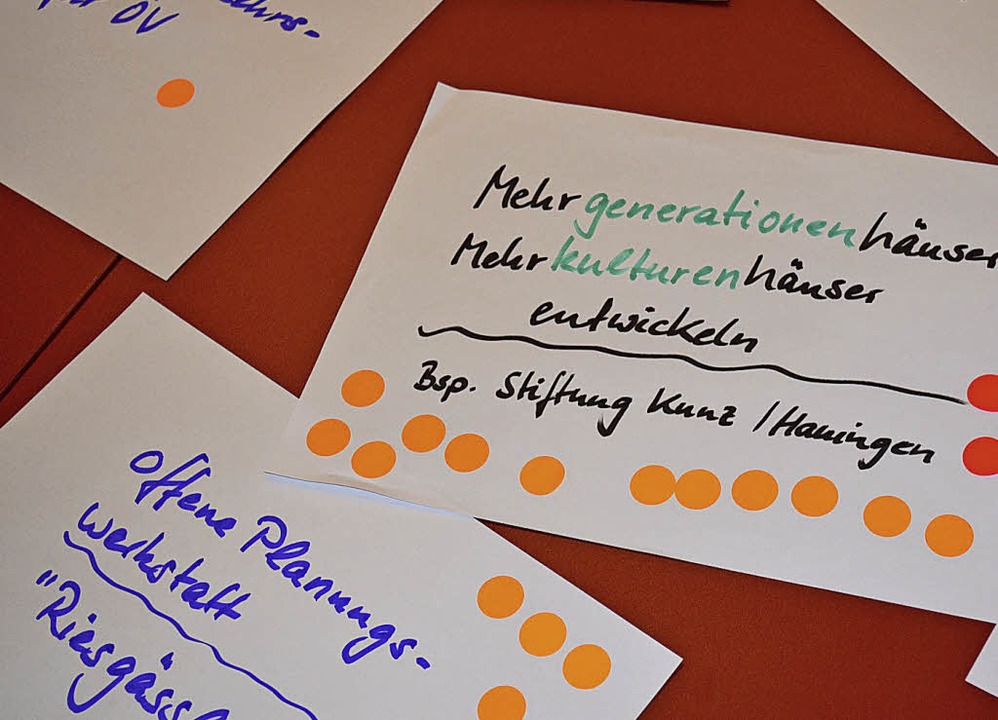 für ÖV
Mehrgenerationenhäuser
Mehrkulturenhäuser
entwickeln
Bsp. Stiftung Kunz / Hauingen
Offene Planungs-
werkstatt
"Riesgäss